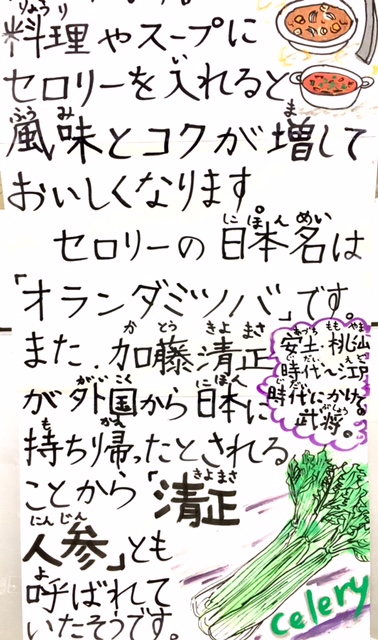 料理やスープに
セロリーを入れると
風味とコクが増して
おいしくなります。
セロリーの日本名は
「オランダミツバ」です。
また、加藤清正
が外国から日本に
持ち帰ったとされる
ことから「清正
人参」とも
呼ばれて
いたそうです。
安土・桃山
時代〜江戸
時代にかける
武将。
celery